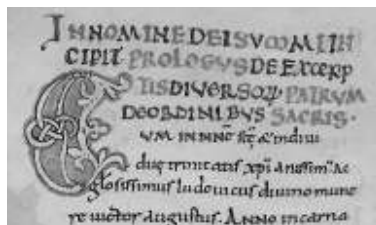 IN NOMINE DEI SUMMI IN
CIPIT PROLOGUS DE EXCERP
TIS DIVERSORꝜ PATRUM
DE ORDINIBUS SACRIS.
CUM IN NNE SCE & indiui
due trinitatis xpianissim' Ac
gl'osissimus ludouuicus diuino mune
re uictor Augustus. ANNO incarna